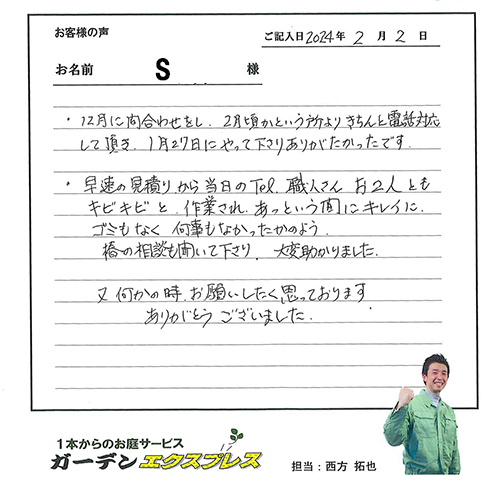 お客様の声
ご記入日 2024年 2月 2日
お名前 S 様
・12月に問合わせをし、2月頃かという所よりきちんと電話対応
して頂き、1月27日にやって下さりありがたかったです。
・早速の見積りから当日のTel、職人さん お2人とも
キビキビと、作業され、あっという間にキレイに、
ゴミもなく 何事もなかったかのよう。
椿の相談も聞いて下さり、大変助かりました。
又 何かの時、お願いしたく思っております
ありがとうございました。
1本からのお庭サービス
ガーデンエクスプレス
担当:西方 拓也